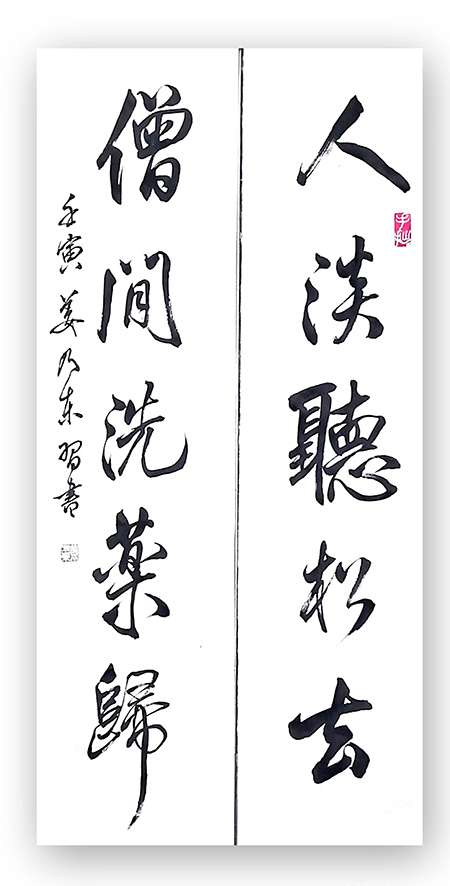 人淡聽松去
僧閒洗藥歸
壬寅姜乃东習書